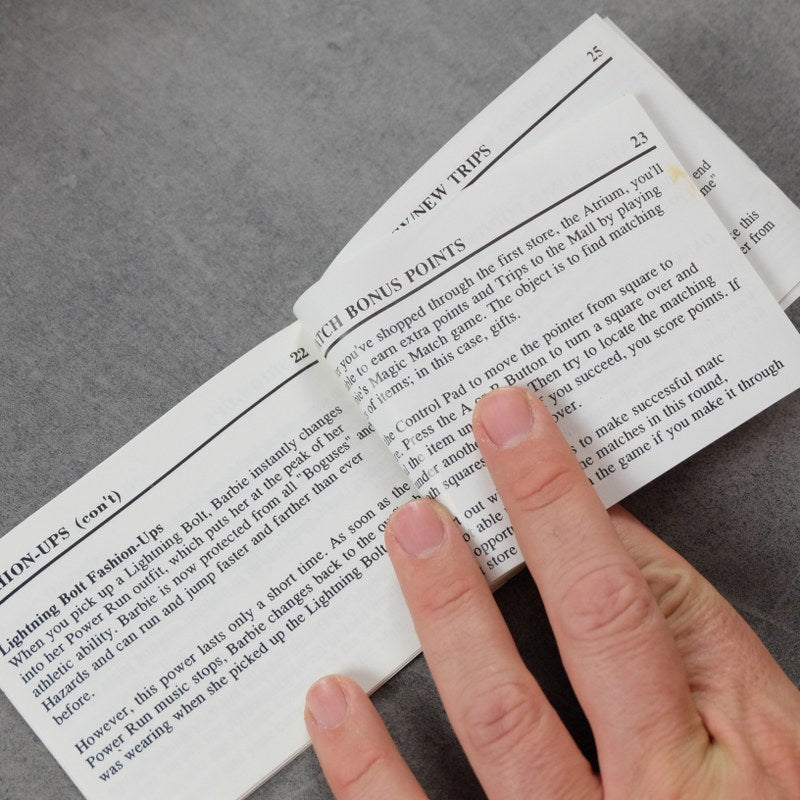 22
HION-UPS (con't)
Lightning Bolt Fashion-Ups
When you pick up a Lightning Bolt, Barbie instantly changes
into her Power Run outfit, which puts her at the peak of her
athletic ability. Barbie is now protected from all "Boguses" and
Hazards and can run and jump faster and farther than ever
before.
However, this power lasts only a short time. As soon as the
Power Run music stops, Barbie changes back to the
was wearing when she picked up the Lightning Bolt
23
TCH BONUS POINTS
you've shopped through the first store, the Atrium, you'll
to earn extra points and Trips to the Mall by playing
Magic Match game. The object is to find matching
of items; in this case, gifts.
the Control Pad to move the pointer from square to
Press the A B Button to turn a square over and
the item Then try to locate the matching
under you succeed, you score points. If
squares over.
out to make successful matc
able matches in this round,
the game if you make it through
store
25
NEW TRIPS
end
me"
this
from